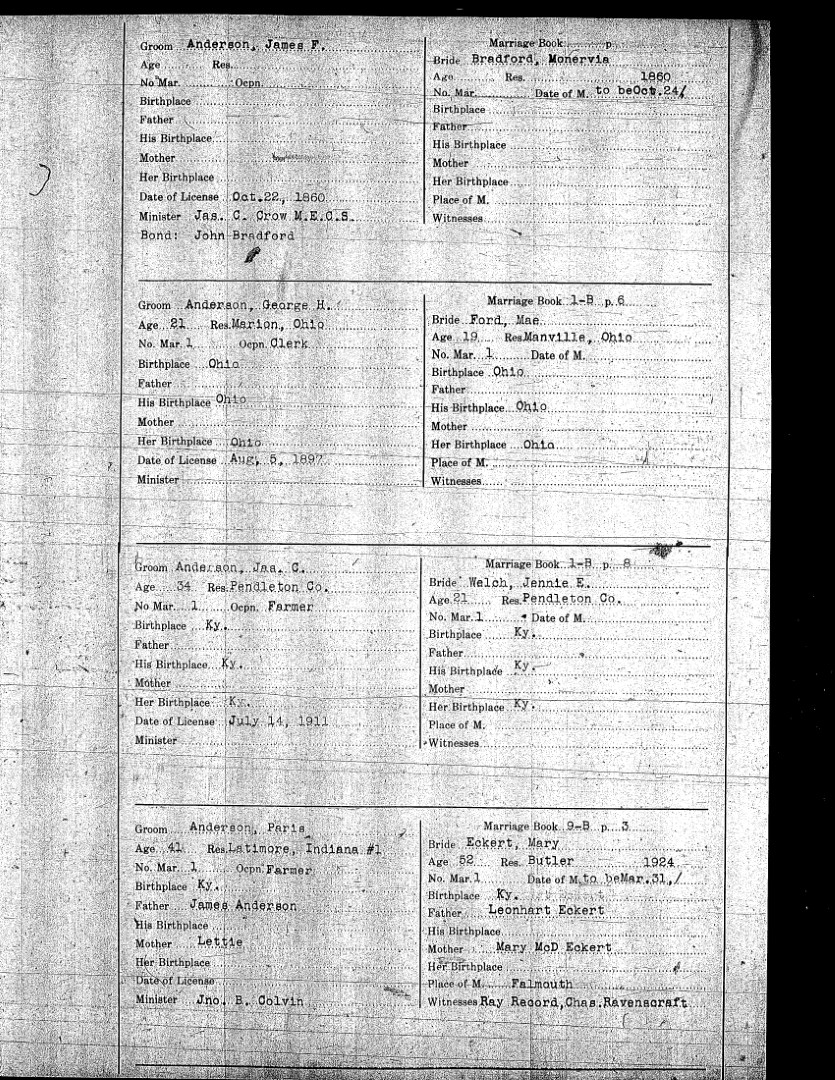 Groom Anderson, James F.
Age Res.
No Mar. Ocpn.
Birthplace
Father
His Birthplace
Mother
Her Birthplace
Date of License Oct.22, 1860
Minister Jas. C. Crow M.E.C.S.
Bond: John Bradford
Marriage Book p.
Bride Bradford, Monervia
Age Res. 1860
No. Mar. Date of M. to beOct.24/
Birthplace
Father
His Birthplace
Mother
Her Birthplace
Place of M.
Witnesses
Groom Anderson, George H.
Age 21 Res. Marion, Ohio
No. Mar. 1 Ocpn. Clerk
Birthplace Ohio
Father
His Birthplace Ohio
Mother
Her Birthplace Ohio
Date of License Aug. 5, 1897
Minister
Marriage Book 1-B p. 6
Bride Ford, Mae
Age 19 Res. Manville, Ohio
No. Mar. 1 Date of M.
Birthplace Ohio
Father
His Birthplace Ohio
Mother
Her Birthplace Ohio
Place of M.
Witnesses
Groom Anderson, Jas. C.
Age 34 Res. Pendleton Co.
No Mar. 1 Ocpn. Farmer
Birthplace Ky.
Father
His Birthplace Ky.
Mother
Her Birthplace Ky.
Date of License July 14, 1911
Minister
Marriage Book 1-B p. 8
Bride Welch, Jennie E.
Age 21 Res. Pendleton Co.
No. Mar. 1 Date of M.
Birthplace Ky.
Father
His Birthplace Ky.
Mother
Her Birthplace Ky.
Place of M.
Witnesses
Groom Anderson, Paris
Age 41 Res. Latimore, Indiana #1
No. Mar. 1 Ocpn. Farmer
Birthplace Ky.
Father James Anderson
His Birthplace
Mother Lettie
Her Birthplace
Date of License
Minister Jno. B. Colvin
Marriage Book 9-B p. 3
Bride Eckert, Mary
Age 52 Res. Butler 1924
No. Mar. 1 Date of M. to beMar.31,/
Birthplace Ky.
Father Leonhart Eckert
His Birthplace
Mother Mary McD Eckert
Her Birthplace
Place of M. Falmouth
Witnesses Ray Record, Chas. Ravenscraft